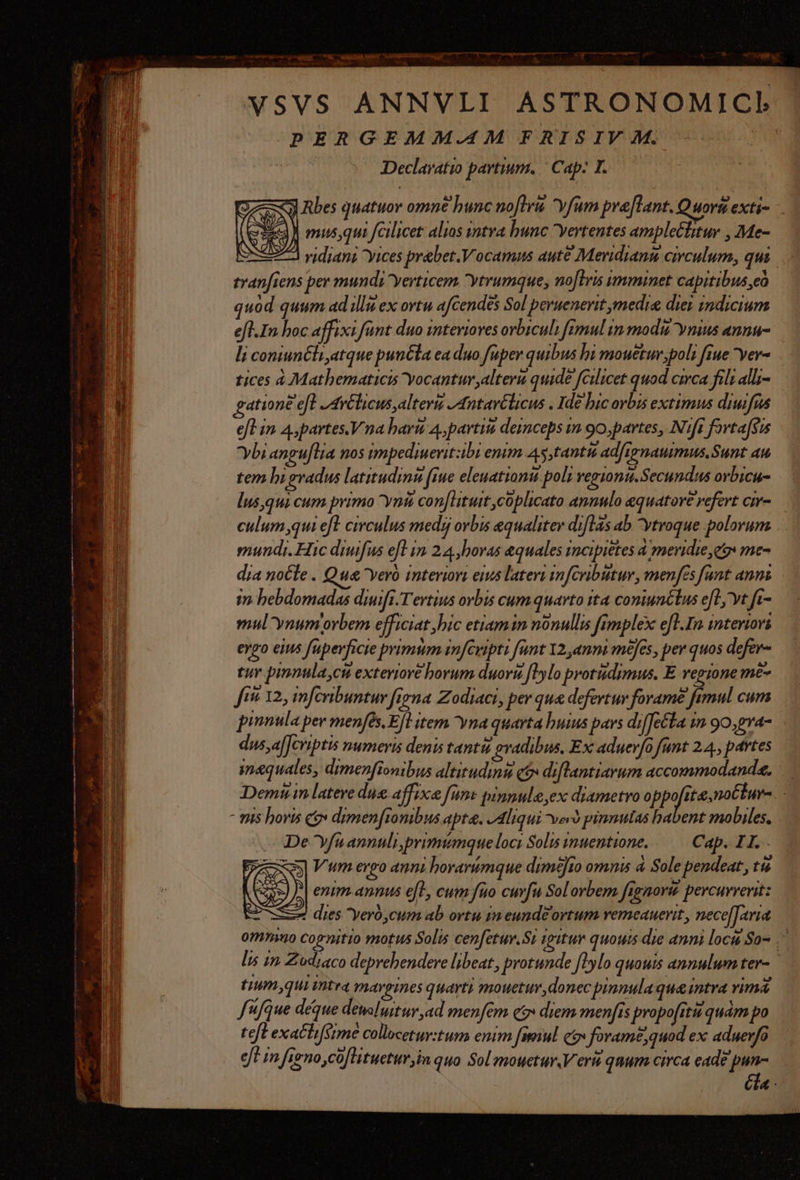 VSVS ANNVLI ASTRONOMICI
PER GEMMAM FRISIVM.
Declaratio partium. Cap: I.
ORbes quatuor omnẽ hunc nostrũ vsum præstant. Quorũ exti-
mus, qui scilicet alios intra hunc vertentes amplectitur, Me-
ridiani vices præbet. Vocamus autẽ Meridianũ circulum, qui
transiens per mundi verticem vtrumque, nostris imminet capitibus, eò
quòd quum ad illũ ex ortu ascendẽs Sol peruenerit, mediæ diei indicium
est. In hoc affixi sunt duo interiores orbiculi simul in modũ vnius annu-
li coniuncti, atque puncta ea duo super quibus hi mouẽtur, poli siue ver-
tices à Mathematicis vocantur, alterũ quidẽ scilicet quod circa fili alli-
gationẽ est Arcticus, alterũ Antarcticus. Idẽ hic orbis extimus diuisus
est in 4, partes. Vna harũ 4, partiũ deinceps in 90, partes, Nisi fortassis
vbi angustia nos impediuerit: ibi enim 45, tantũ adsignauimus. Sunt au
tem hi gradus latitudinũ siue eleuationũ poli regionũ. Secundus orbicu-
lus, qui cum primo vnũ constituit, cõplicato annulo æquatorẽ refert cir-
culum, qui est circulus medij orbis æqualiter distãs ab vtroque polorum
mundi. Hic diuisus est in 24, horas æquales incipiẽtes à meridie, & me-
dia nocte. Quæ verò interiori eius lateri inscribũtur, menses sunt anni
in hebdomadas diuisi. Tertius orbis cum quarto ita coniunctus est, vt si-
mul vnum orbem efficiat, hic etiam in nõnullis simplex est. In interiori
ergo eius superficie primùm inscripti sunt 12, anni mẽses, per quos defer-
tur pinnula, cũ exteriorẽ horum duorũ stylo protrũdimus. E regione mẽ-
siũ 12, inscribuntur signa Zodiaci, per quæ defertur foramẽ simul cum
pinnula per mensẽs. Est item vna quarta huius pars dissecta in 90, gra-
dus, asscriptis numeris denis tantũ gradibus. Ex aduerso sunt 24, partes
inæquales, dimensionibus altitudinũ & distantiarum accommodandæ.
Demũ in latere duæ affixæ sunt pinnulæ, ex diametro oppositæ, noctur-
nis horis & dimensionibus aptæ. Aliqui verò pinnulas habent mobiles.
De vsu annuli, primùmque loci Solis inuentione. Cap. II.
CVm ergo anni horarúmque dimẽsio omnis à Sole pendeat, tũ
enim annus est, cum suo cursu Sol orbem signorũ percurrerit:
dies verò, cum ab ortu in eundẽ ortum remeauerit, necessaria
omnino cognitio motus Solis censetur. Si igitur quouis die anni locũ So-
lis in Zodiaco deprehendere libeat, protunde stylo quouis annulum ter-
tium, qui intra margines quarti mouetur, donec pinnula quæ intra rimã
susque déque deuoluitur, ad mensem & diem mensis propositũ quàm po
test exactissimè collocetur: tum enim simul & foramẽ, quod ex aduerso
est in signo, cõstituetur, in quo Sol mouetur. Verũ quum circa eadẽ pun-
cta